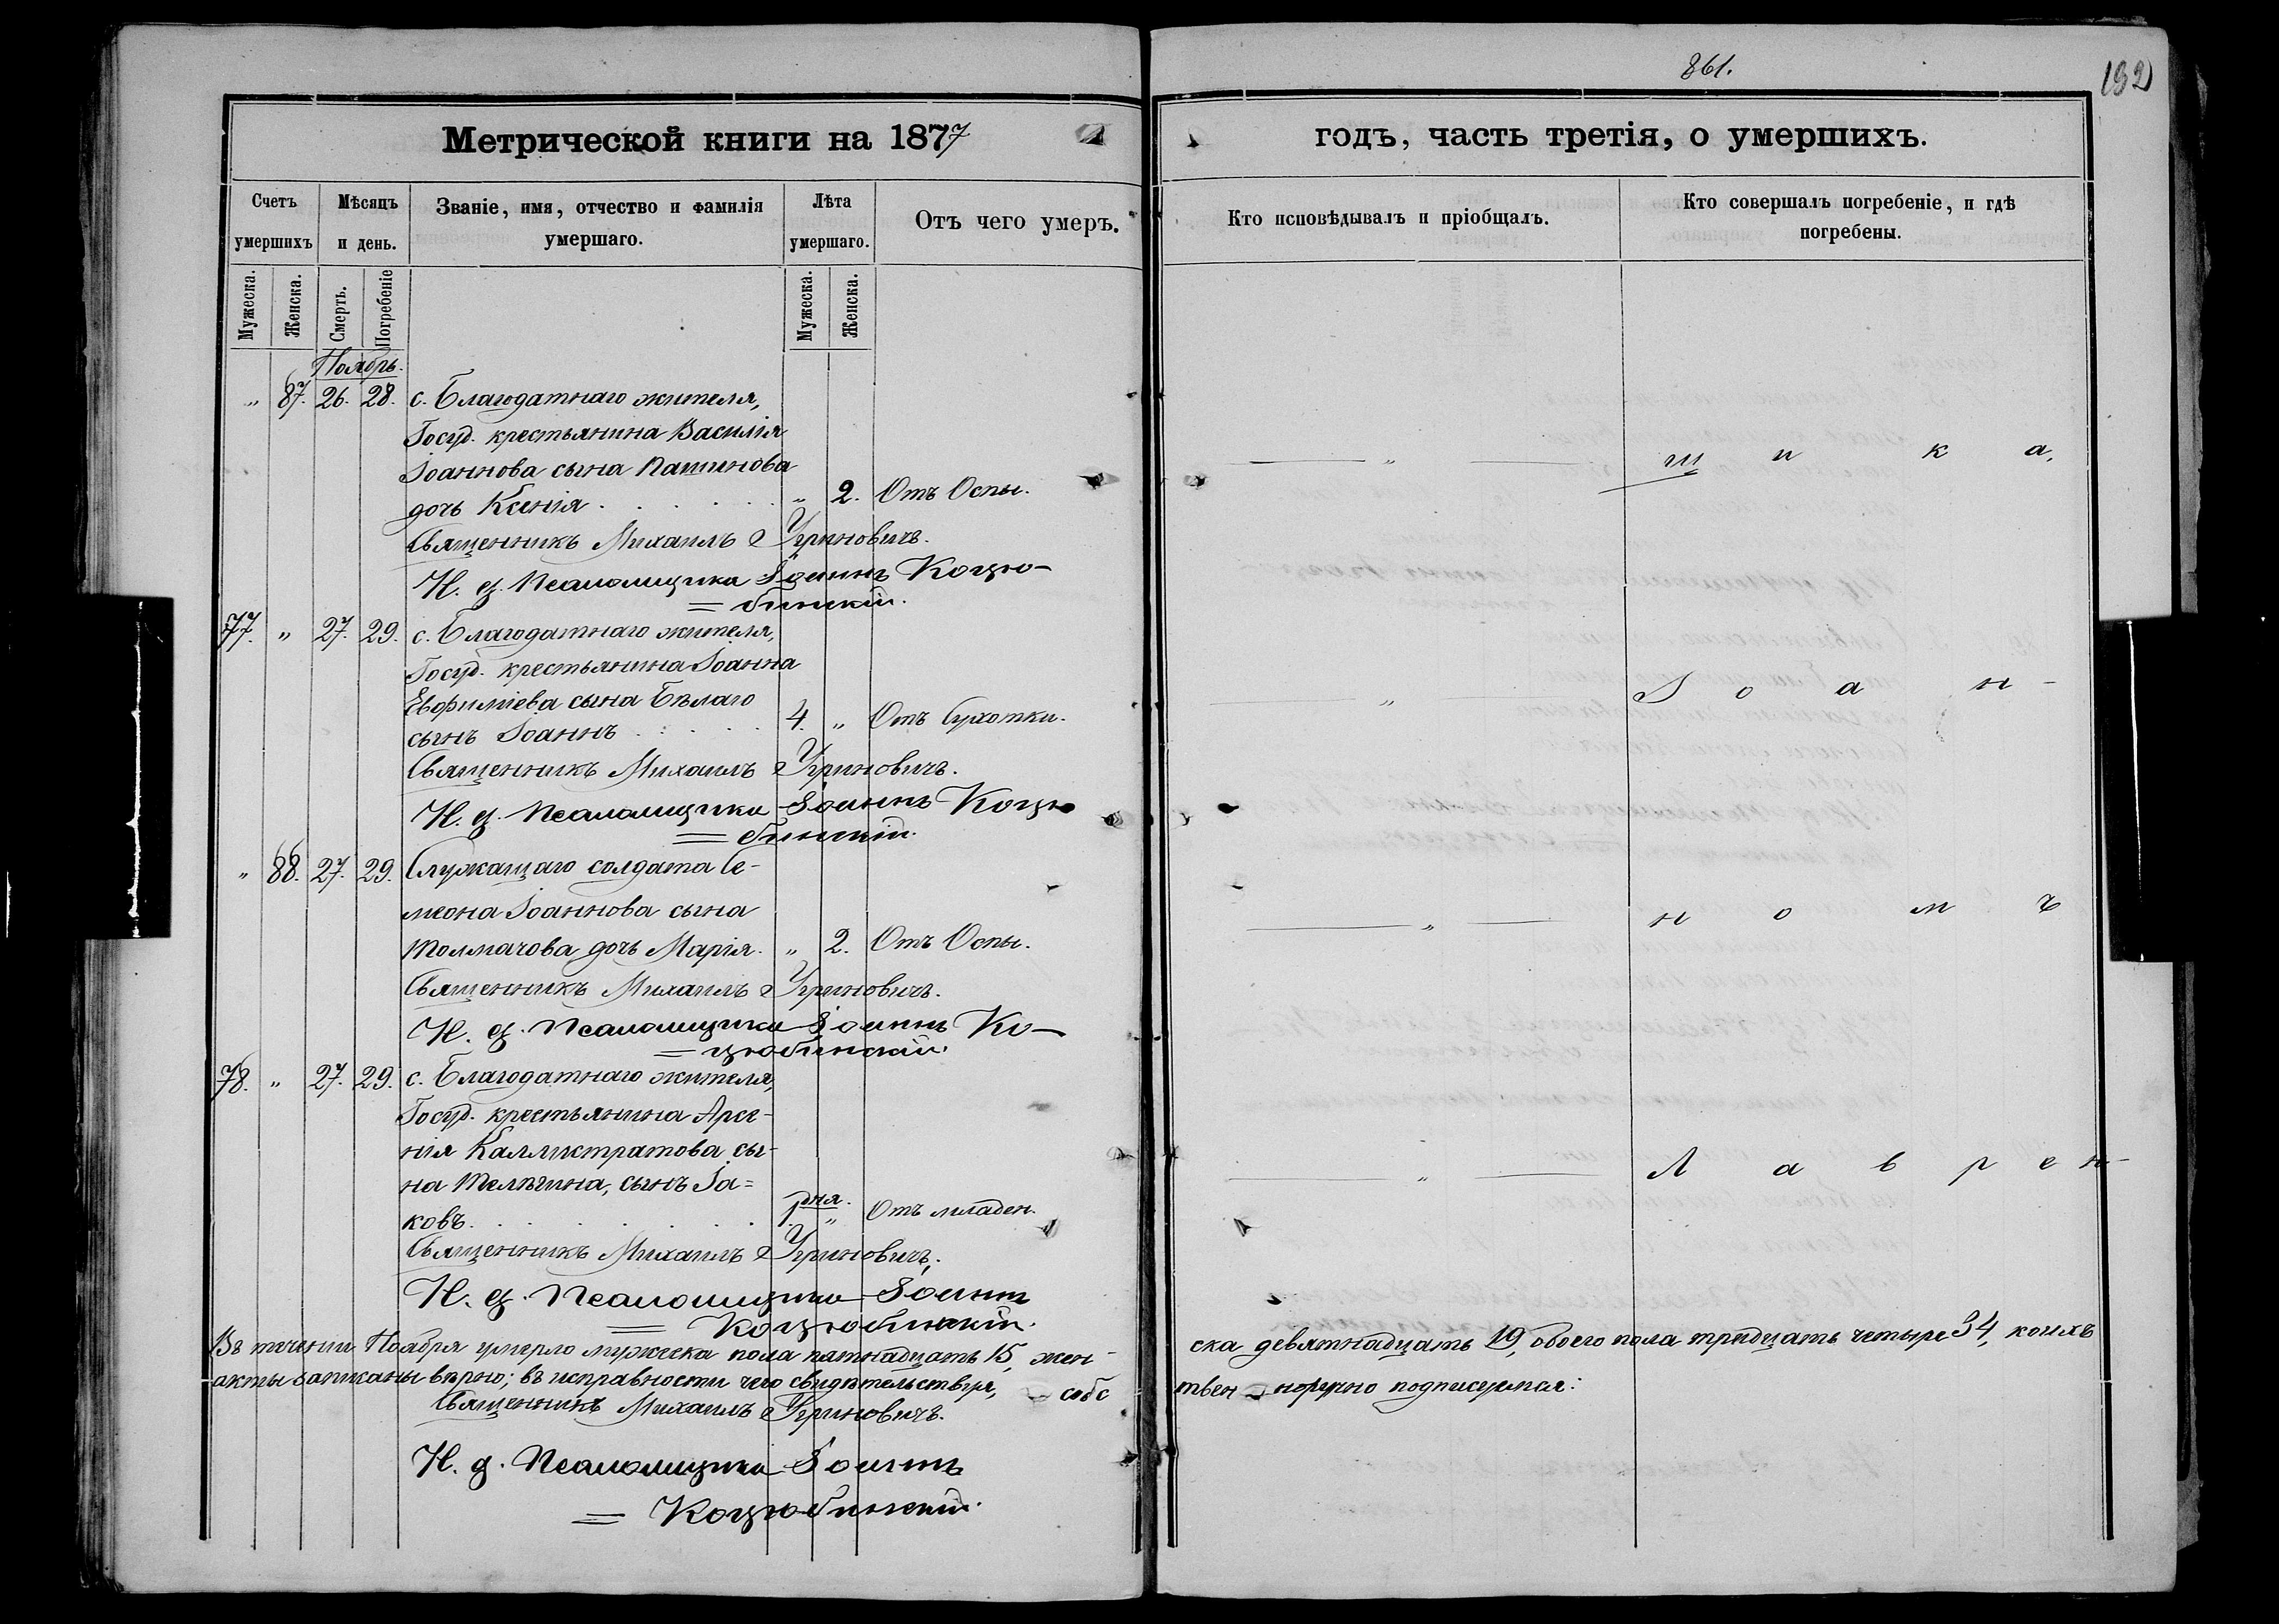 861.
192
Метрической книги на 1877
годъ, часть третія, о умершихъ.
Счетъ умершихъ
Мѣсяцъ и день.
Званіе, имя, отчество и фамилія умершаго.
Лѣта умершаго.
Отъ чего умеръ.
Кто исповѣдывалъ и пріобщалъ.
Кто совершалъ погребеніе, и гдѣ погребены.
Мужеска.
Женска.
Смерть.
Погребеніе
Мужеска.
Женска.
Ноябрь.
„ 87. 26. 28. с. Благодатнаго жителя,
Госуд. крестьянина Василія
Іоаннова сына Пашинова
дочь Ксенія . . . . . „ 2. Отъ Оспы.
— „ — щ и к а.
Священникъ Михаилъ Угриновичъ.
И. д. Псаломщика Іоаннъ Коцю-
= бинскій.
77. „ 27. 29. с. Благодатнаго жителя,
Госуд. крестьянина Іоанна
Евфиміева сына Бѣлаго
сынъ Іоаннъ . . . . 4. „ Отъ Сухотки.
— „ — І о а н -
Священникъ Михаилъ Угриновичъ.
И. д. Псаломщика Іоаннъ Коцю
= бинскій.
„ 88. 27. 29. Служащаго солдата Се-
меона Іоаннова сына
Толмачова дочь Марія. „ 2. Отъ Оспы.
— „ — н о м ъ
Священникъ Михаилъ Угриновичъ.
И. д. Псаломщика Іоаннъ Ко-
= цюбинскій.
78. „ 27. 29. с. Благодатнаго жителя,
Госуд. крестьянина Арсе-
нія Каллистратова сы-
на Телѣгина, сынъ Іа=
ковъ. . . . . . . „ Отъ младен.
— „ — Л а в р е н -
Священникъ Михаилъ Угриновичъ.
И. д. Псаломщика Іоаннъ
= Коцюбинскій.
Въ теченіи Ноября умерло мужеска пола пятнадцать 15, жен-
ска девятнадцать 19, обоего пола тридцать четыре 34, коихъ
акты записаны вѣрно; въ исправности чего свидѣтельствуя, собс
твен-норучно подписуемся:
Священникъ Михаилъ Угриновичъ.
И. д. Псаломщика Іоаннъ
= Коцюбинскій.